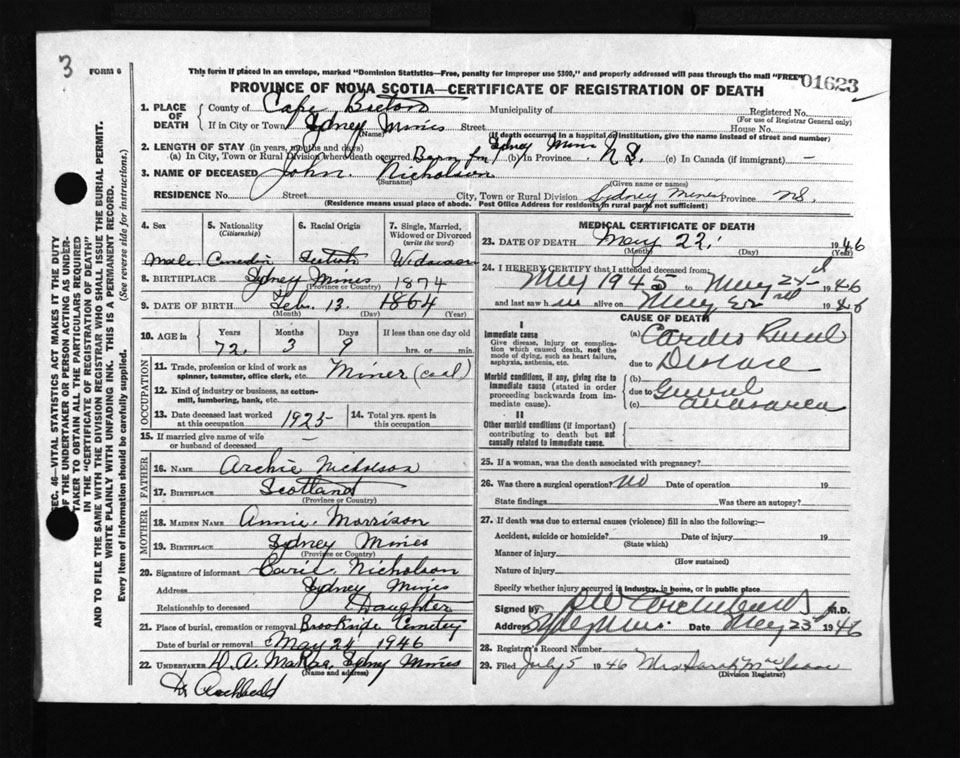 3
FORM 6
This form if placed in an envelope, marked "Dominion Statistics—Free, penalty for improper use $300," and properly addressed will pass through the mail "FREE"
01623
PROVINCE OF NOVA SCOTIA—CERTIFICATE OF REGISTRATION OF DEATH
SEC. 46—VITAL STATISTICS ACT MAKES IT THE DUTY
OF THE UNDERTAKER OR PERSON ACTING AS UNDER-
TAKER TO OBTAIN ALL THE PARTICULARS REQUIRED
IN THE "CERTIFICATE OF REGISTRATION OF DEATH"
AND TO FILE THE SAME WITH THE DIVISION REGISTRAR WHO SHALL ISSUE THE BURIAL PERMIT.
WRITE PLAINLY WITH UNFADING INK. THIS IS A PERMANENT RECORD.
Every item of information should be carefully supplied. (See reverse side for instructions.)
1. PLACE OF DEATH
County of Cape Breton Municipality of Registered No.
(For use of Registrar General only)
If in City or Town Sydney Mines Street House No.
(Name) (If death occurred in a hospital or institution, give the name instead of street and number)
2. LENGTH OF STAY (in years, months and days)
(a) In City, Town or Rural Division where death occurred Born in Sydney Mines (b) in Province N.S. (c) In Canada (if immigrant) —
3. NAME OF DECEASED John Nicholson
(Surname) (Given name or names)
RESIDENCE No. Street City, Town or Rural Division Sydney Mines Province NS.
(Residence means usual place of abode. Post Office Address for residents in rural parts not sufficient)
4. Sex 5. Nationality (Citizenship) 6. Racial Origin 7. Single, Married, Widowed or Divorced (write the word)
Male Scotish
8. BIRTHPLACE Sydney Mines
(Province or Country) 1874
9. DATE OF BIRTH Feb. 13. 1864
(Month) (Day) (Year)
10. AGE in Years Months Days If less than one day old
72. 3 9 hrs. or min.
OCCUPATION
11. Trade, profession or kind of work as spinner, teamster, office clerk, etc. Miner (coal)
12. Kind of industry or business, as cotton-mill, lumbering, bank, etc.
13. Date deceased last worked at this occupation 1925 14. Total yrs. spent in this occupation
15. If married give name of wife or husband of deceased —
FATHER
16. NAME Archie Nicholson
17. BIRTHPLACE Scotland
(Province or Country)
MOTHER
18. MAIDEN NAME Annie Morrison
19. BIRTHPLACE Sydney Mines
(Province or Country)
20. Signature of informant Nicholson
Address Sydney Mines
Relationship to deceased Daughter
21. Place of burial, cremation or removal Brookside Cemetery
Date of burial or removal May 24 1946
22. UNDERTAKER D. A. MacRae, Sydney Mines
(Name and address)
Dr Archibald
MEDICAL CERTIFICATE OF DEATH
23. DATE OF DEATH May 22 1946
(Month) (Day) (Year)
24. I HEREBY CERTIFY that I attended deceased from:
May 1945 to May 1946
and last saw h im alive on May 22nd 1946
CAUSE OF DEATH
I
Immediate cause
Give disease, injury or complication which caused death, not the mode of dying, such as heart failure, asphyxia, asthenia, etc.
(a) Cardio Renal
due to Disease
Morbid conditions, if any, giving rise to immediate cause (stated in order proceeding backwards from immediate cause).
(b)
due to General
(c) anasarca
II
Other morbid conditions (if important) contributing to death but not causally related to immediate cause.
25. If a woman, was the death associated with pregnancy?
26. Was there a surgical operation? No Date of operation 19
State findings Was there an autopsy?
27. If death was due to external causes (violence) fill in also the following:—
Accident, suicide or homicide? Date of injury 19
(State which)
Manner of injury
(How sustained)
Nature of injury
Specify whether injury occurred in industry, in home, or in public place
Signed by M.D.
Address Sydney Mines Date May 23d 1946
28. Registrar's Record Number
29. Filed July 5 1946 Mrs Sarah
(Division Registrar)